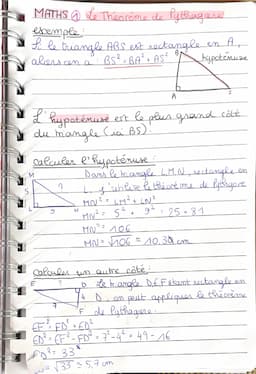 MATHS ① Le Théorème de Pythagore
exemple :
Si le triangle ABS est rectangle en A,
alors on a BS² = BA² + AS²
B
hypoténuse
A
S
L'hypoténuse est le plus grand côté
du triangle (ici BS).
calculer l'hypoténuse :
Dans le triangle LMN, rectangle en
L, j'utilise le théorème de Pythagore
M
?
5
L
9
N
MN² = LM² + LN²
MN² = 5² + 9² = 25 + 81
MN² = 106
MN = √106 = 10.30 cm
calculer un autre côté :
E
?
D
7
4
F
le triangle DEF étant rectangle en
D, on peut appliquer le théorème
de Pythagore.
EF² = FD² + ED²
ED² = EF² - FD² = 7² - 4² = 49 - 16
ED² = 33
= √33 = 5,7 cm